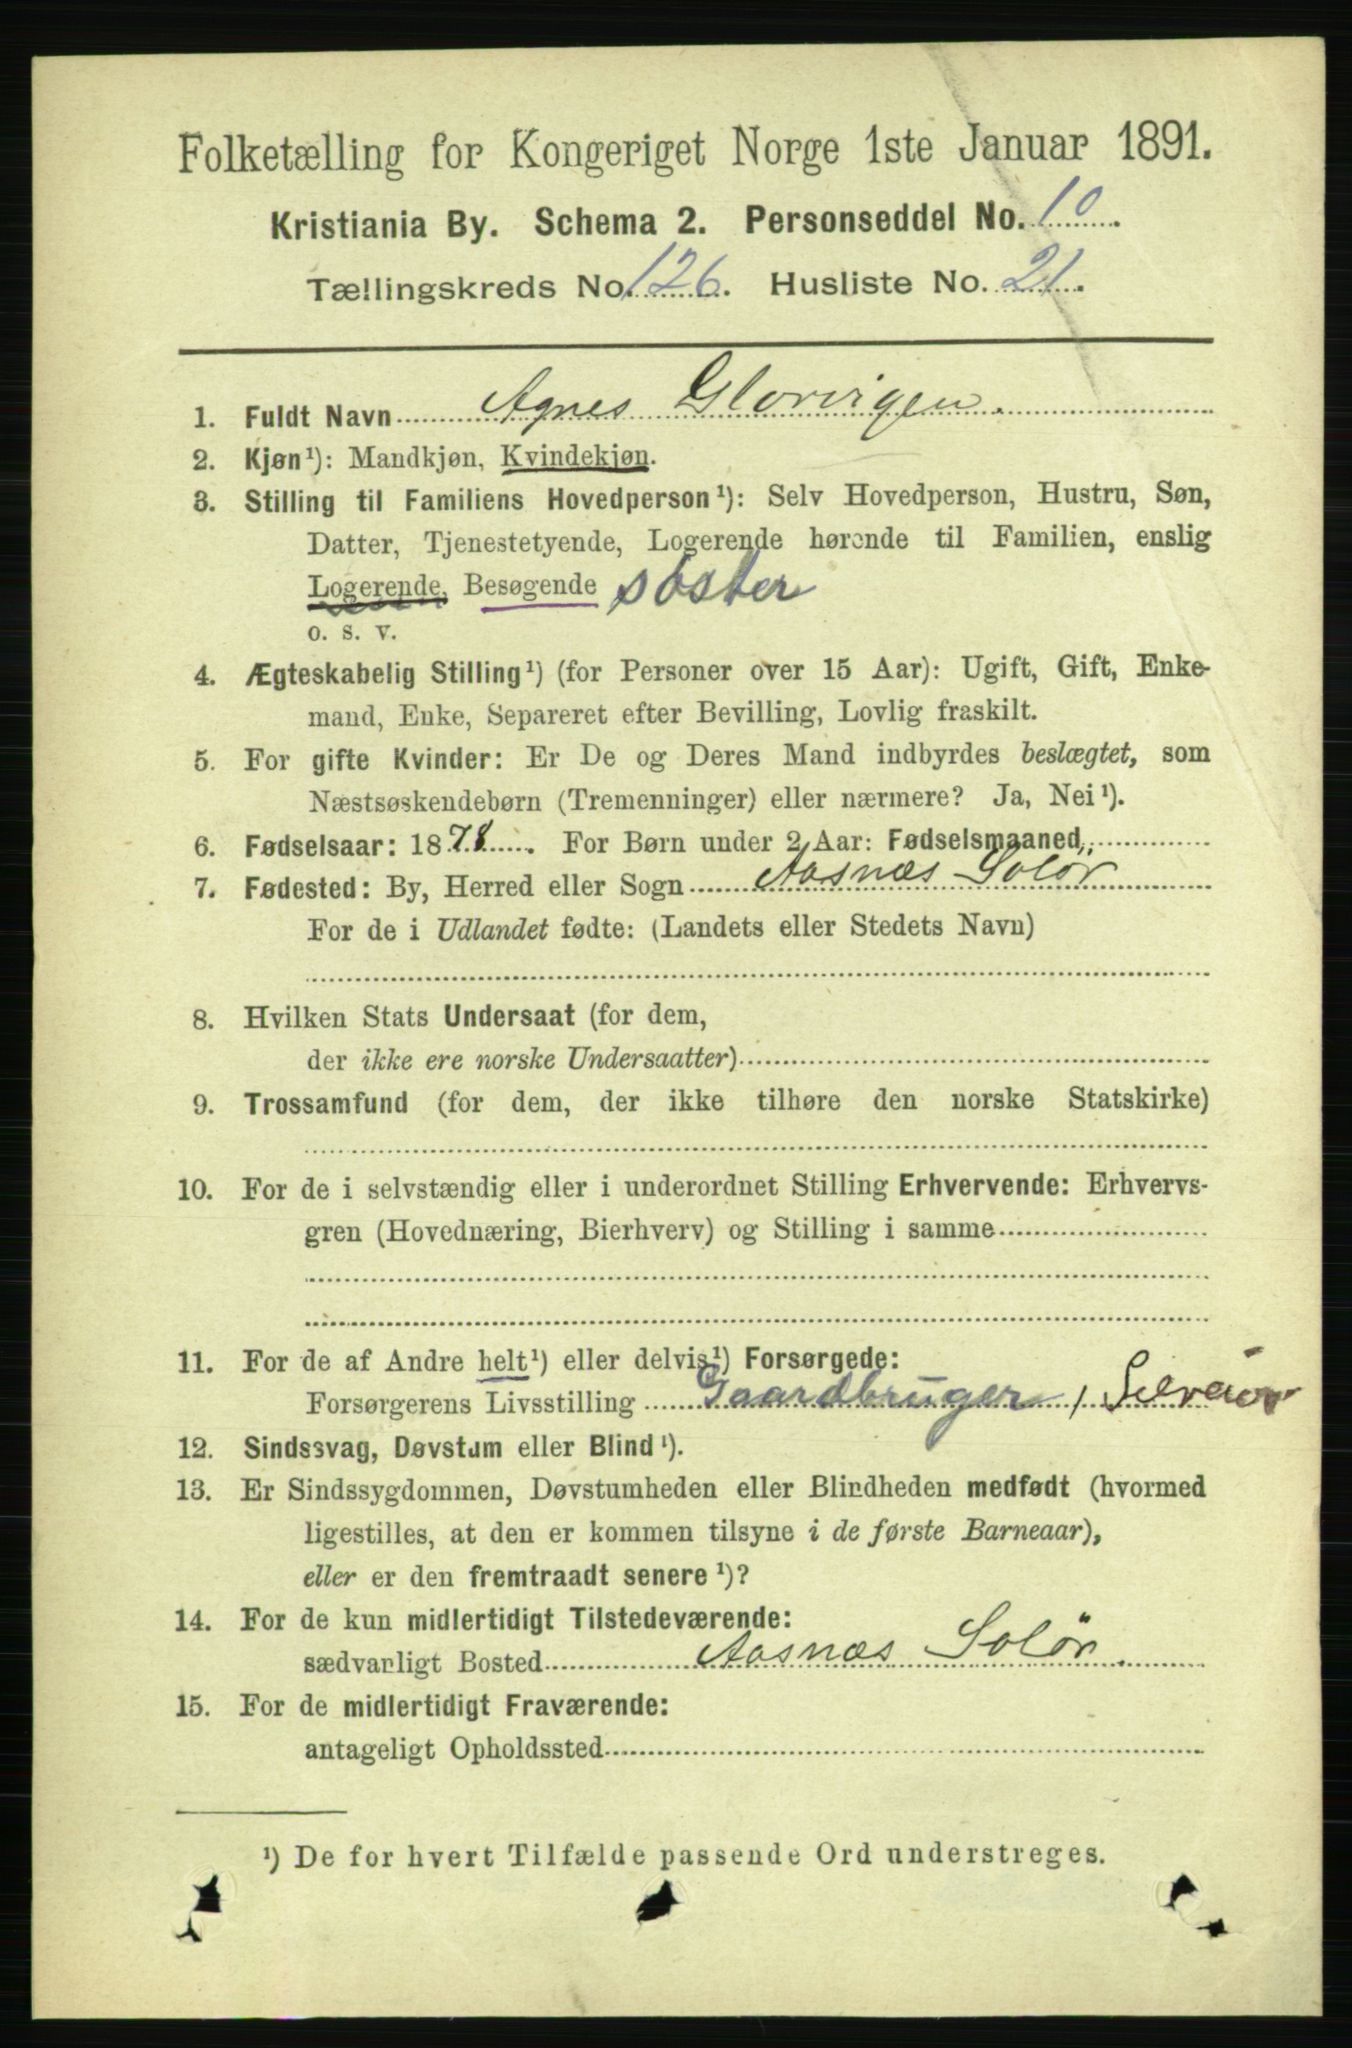 Folketælling for Kongeriget Norge 1ste Januar 1891.
Kristiania By. Schema 2. Personseddel No. 10.
Tællingskreds No. 126. Husliste No. 21.
1. Fuldt Navn Agnes Glorvigen.
2. Kjøn¹): Mandkjøn, Kvindekjøn.
3. Stilling til Familiens Hovedperson¹): Selv Hovedperson, Hustru, Søn,
Datter, Tjenestetyende, Logerende hørende til Familien, enslig
Logerende, Besøgende søster
o. s. v.
4. Ægteskabelig Stilling¹) (for Personer over 15 Aar): Ugift, Gift, Enke-
mand, Enke, Separeret efter Bevilling, Lovlig fraskilt.
5. For gifte Kvinder: Er De og Deres Mand indbyrdes beslægtet, som
Næstsøskendebørn (Tremenninger) eller nærmere? Ja, Nei¹).
6. Fødselsaar: 1878. For Børn under 2 Aar: Fødselsmaaned
7. Fødested: By, Herred eller Sogn Aasnæs Solör
For de i Udlandet fødte: (Landets eller Stedets Navn)
8. Hvilken Stats Undersaat (for dem,
der ikke ere norske Undersaatter)
9. Trossamfund (for dem, der ikke tilhøre den norske Statskirke)
10. For de i selvstændig eller i underordnet Stilling Erhvervende: Erhvervs-
gren (Hovednæring, Bierhverv) og Stilling i samme
11. For de af Andre helt¹) eller delvis¹) Forsørgede:
Forsørgerens Livsstilling Gaardbruger, Selveier
12. Sindssvag, Døvstum eller Blind¹).
13. Er Sindssygdommen, Døvstumheden eller Blindheden medfødt (hvormed
ligestilles, at den er kommen tilsyne i de første Barneaar),
eller er den fremtraadt senere¹)?
14. For de kun midlertidigt Tilstedeværende:
sædvanligt Bosted Aasnæs Solör.
15. For de midlertidigt Fraværende:
antageligt Opholdssted
¹) De for hvert Tilfælde passende Ord understreges.